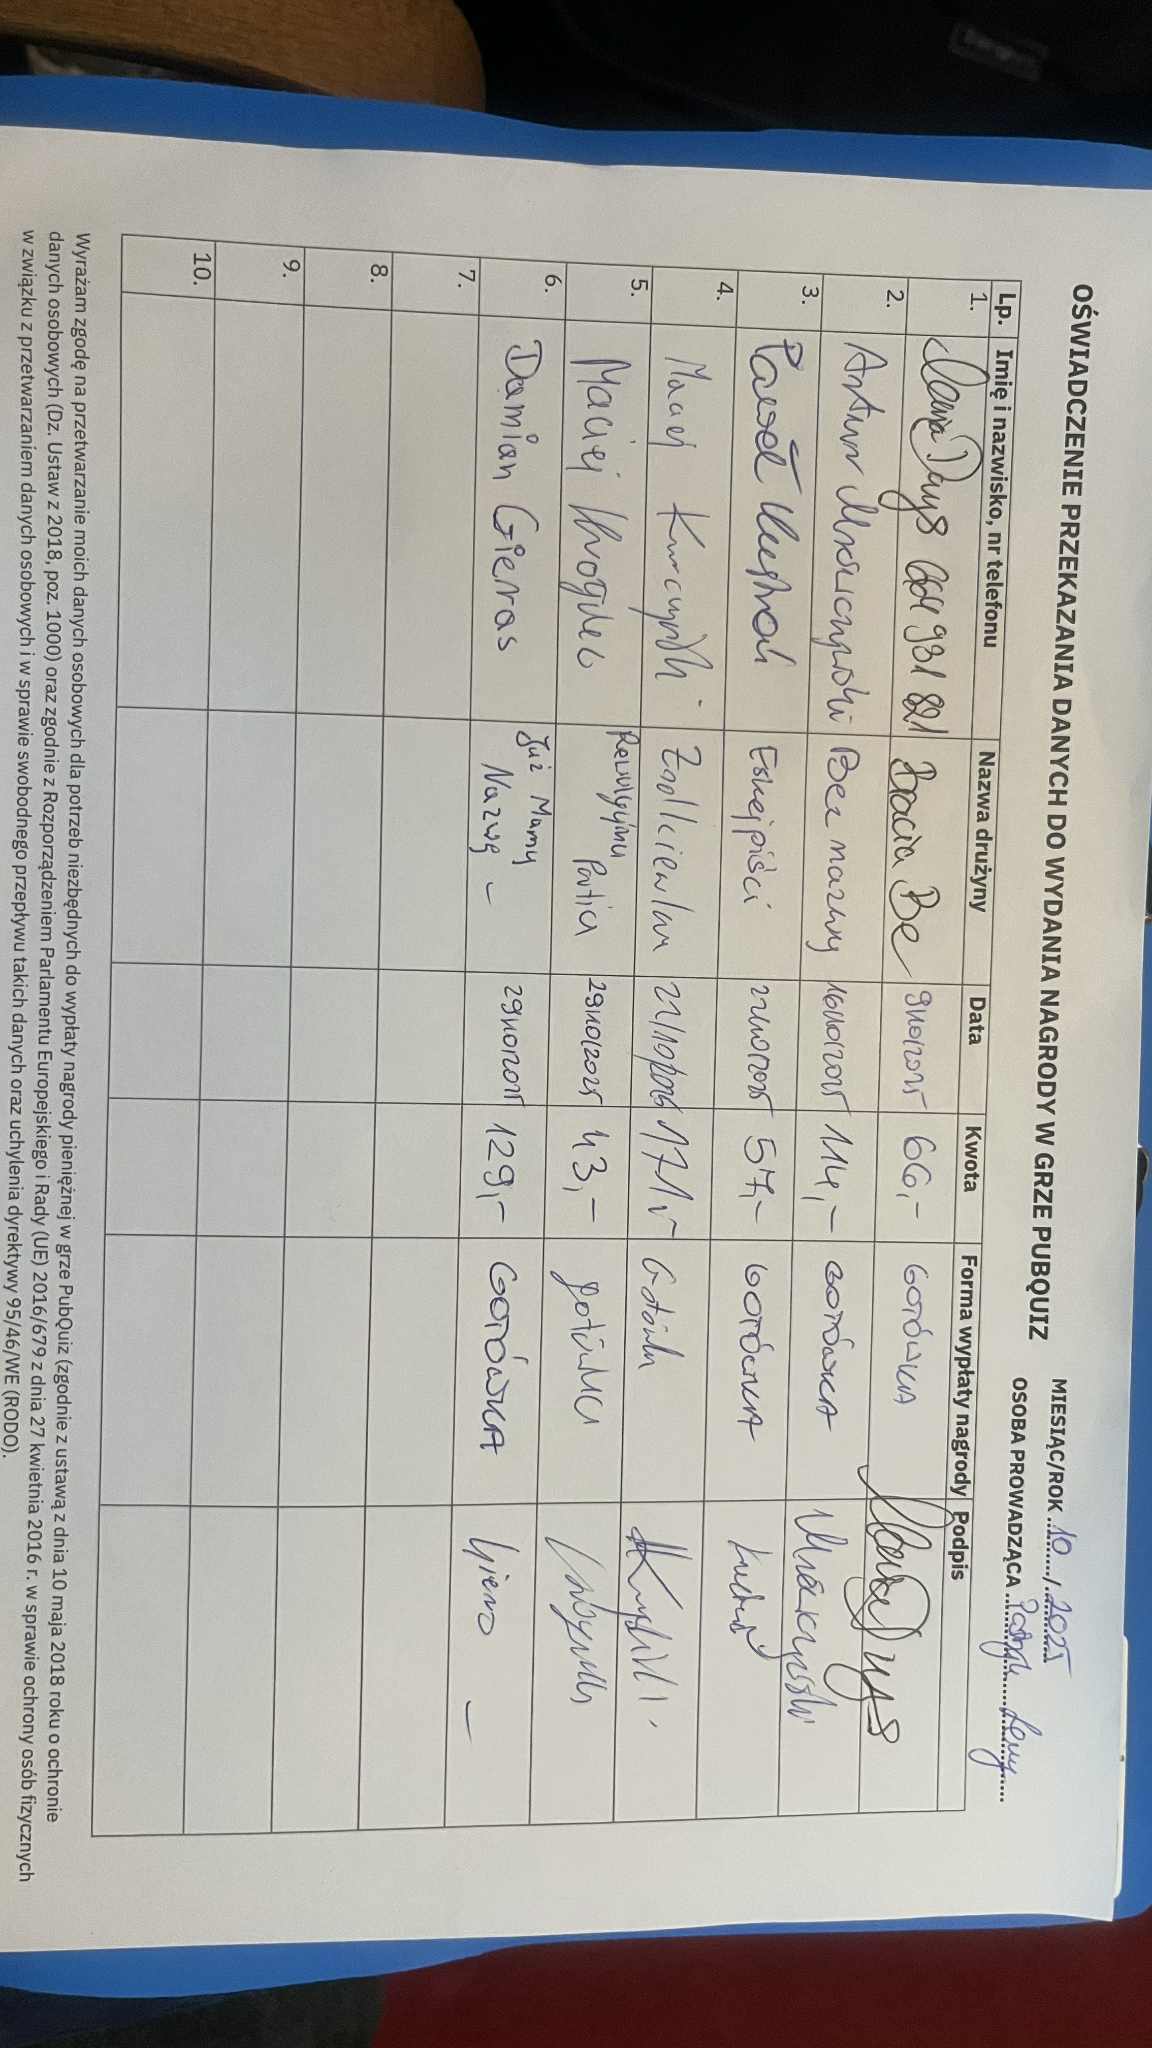 OŚWIADCZENIE PRZEKAZANIA DANYCH DO WYDANIA NAGRODY W GRZE PUBQUIZ
MIESIĄC/ROK 10 / 2025
OSOBA PROWADZĄCA
Lp. Imię i nazwisko, nr telefonu Nazwa drużyny Data Kwota Forma wypłaty nagrody Podpis
1. 931 Bracia Be 9/10/2025 66,- GOTÓWKA
2. Artur Bez nazwy 16/10/2025 114,- GOTÓWKA
3. Paweł Eskejpiści 22/10/2025 57,- GOTÓWKA
4. Maciej 22/10/2025 171 Gotówka
5. Maciej Partia 29/10/2025 43,- gotówka
6. Damian Gieras Już Mamy Nazwę - 29/10/2025 129,- GOTÓWKA
7.
8.
9.
10.
Wyrażam zgodę na przetwarzanie moich danych osobowych dla potrzeb niezbędnych do wypłaty nagrody pieniężnej w grze PubQuiz (zgodnie z ustawą z dnia 10 maja 2018 roku o ochronie
danych osobowych (Dz. Ustaw z 2018, poz. 1000) oraz zgodnie z Rozporządzeniem Parlamentu Europejskiego i Rady (UE) 2016/679 z dnia 27 kwietnia 2016 r. w sprawie ochrony osób fizycznych
w związku z przetwarzaniem danych osobowych i w sprawie swobodnego przepływu takich danych oraz uchylenia dyrektywy 95/46/WE (RODO).